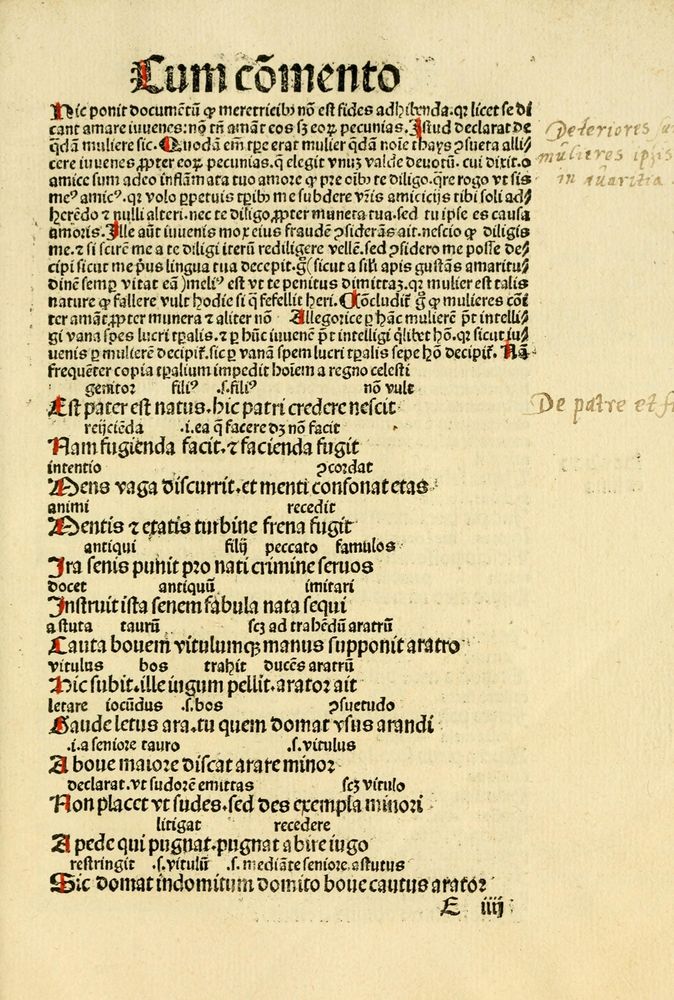 Cum cõmento
Hic ponit documẽtũ ꝙ meretricibꝰ nõ est fides adhibenda. qꝛ licet se di
cant amare iuuenes: nõ tñ amãt eos sꝫ eoꝝ pecunias. Istud declarat de
q̃dã muliere sic. Quodã em̃ tꝑe erat mulier q̃dã noĩe thays ꝯsueta alli/
cere iuuenes ꝓpter eoꝝ pecunias. q̃ elegit vnuꝫ valde deuotũ. cui dixit. o
amice sum adeo inflãmata tuo amore ꝙ pre oĩbꝰ te diligo. q̃re rogo vt sis
meꝰ amicꝰ. qꝛ volo ꝑpetuis tꝑibꝰ me subdere vr̃is amicicijs tibi soli ad/
herẽdo ⁊ nulli alteri. nec te diligo ꝓpter munera tua. sed tu ipse es causa
amoris. Ille aũt iuuenis mox eius fraudẽ ꝯsiderãs ait. nescio ꝙ diligis
me. ⁊ si scirẽ me a te diligi iterũ rediligere vellẽ. sed ꝯsidero me posse de/
cipi sicut me p̃us lingua tua decepit. g̃ (sicut a sil̃i apis gustãs amaritu/
dinẽ semꝑ vitat eã) meliꝰ est vt te penitus dimittaꝫ. qꝛ mulier est talis
nature ꝙ fallere vult hodie si q̃ fefellit heri. Cõcludit̃ g̃ ꝙ mulieres cõi
ter amãt ꝓpter munera ⁊ aliter nõ Allegorice ꝑ hãc mulierẽ p̃t intelli/
gi vana spes lucri tꝑalis. ⁊ ꝑ hũc iuuenẽ p̃t intelligi q̃libet hõ. qꝛ sicut iu/
uenis ꝑ mulierẽ decipit̃. sic ꝑ vanã spem lucri tꝑalis sepe hõ decipit̃. Nã
frequẽter copia tꝑalium impedit hoĩem a regno celesti
genitor filiꝰ .s. filiꝰ nõ vult
Est pater est natus. hic patri credere nescit
reijciẽda .i. ea q̃ facere dꝫ nõ facit
Nam fugienda facit. ⁊ facienda fugit
intentio ꝯcordat
Mens vaga discurrit. et menti consonat etas
animi recedit
Mentis ⁊ etatis turbine frena fugit
antiqui filij peccato famulos
Ira senis punit pro nati crimine seruos
docet antiquũ imitari
Instruit ista senem fabula nata sequi
astuta taurũ scꝫ ad trahẽdũ aratrũ
Cauta bouem vitulumqꝫ manus supponit aratro
vitulus bos trahit ducẽs aratrũ
Hic subit. ille iugum pellit. arator ait
letare iocũdus .s. bos ꝯsuetudo
Gaude letus ara. tu quem domat vsus arandi
.i. a seniore tauro .s. vitulus
A boue maiore discat arare minor
declarat. vt sudorẽ emittas scꝫ vitulo
Non placet vt sudes. sed des exempla minori
litigat recedere
A pede qui pugnat. pugnat abire iugo
restringit .s. vitulũ .s. mediãte seniore. astutus
Sic domat indomitum domito boue cautus arator
E iiij
Deteriores
mulieres ipsis
in auaritia.
De patre et